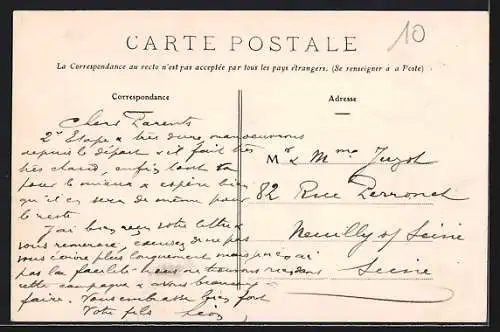 10
CARTE POSTALE
La Correspondance au recto n'est pas acceptée par tous les pays étrangers. (Se renseigner à la Poste)
Correspondance
Adresse
Chers Parents
2e Etape très dure, manoeuvrons
depuis le départ il fait très
très chaud, enfin tout va
pour le mieux & espère bien
qu'il en sera de même pour
le reste
J'ai bien reçu votre lettre &
vous remercie, excusez de ne pas
vous écrire plus longuement mais
pas la facilité nous ne trouvons rien dans
cette campagne & avons beaucoup
faire. Vous embrasse bien fort
Votre fils Léon
Mr & Mme Juzot
82 Rue Perronet
Neuilly s/ Seine
Seine